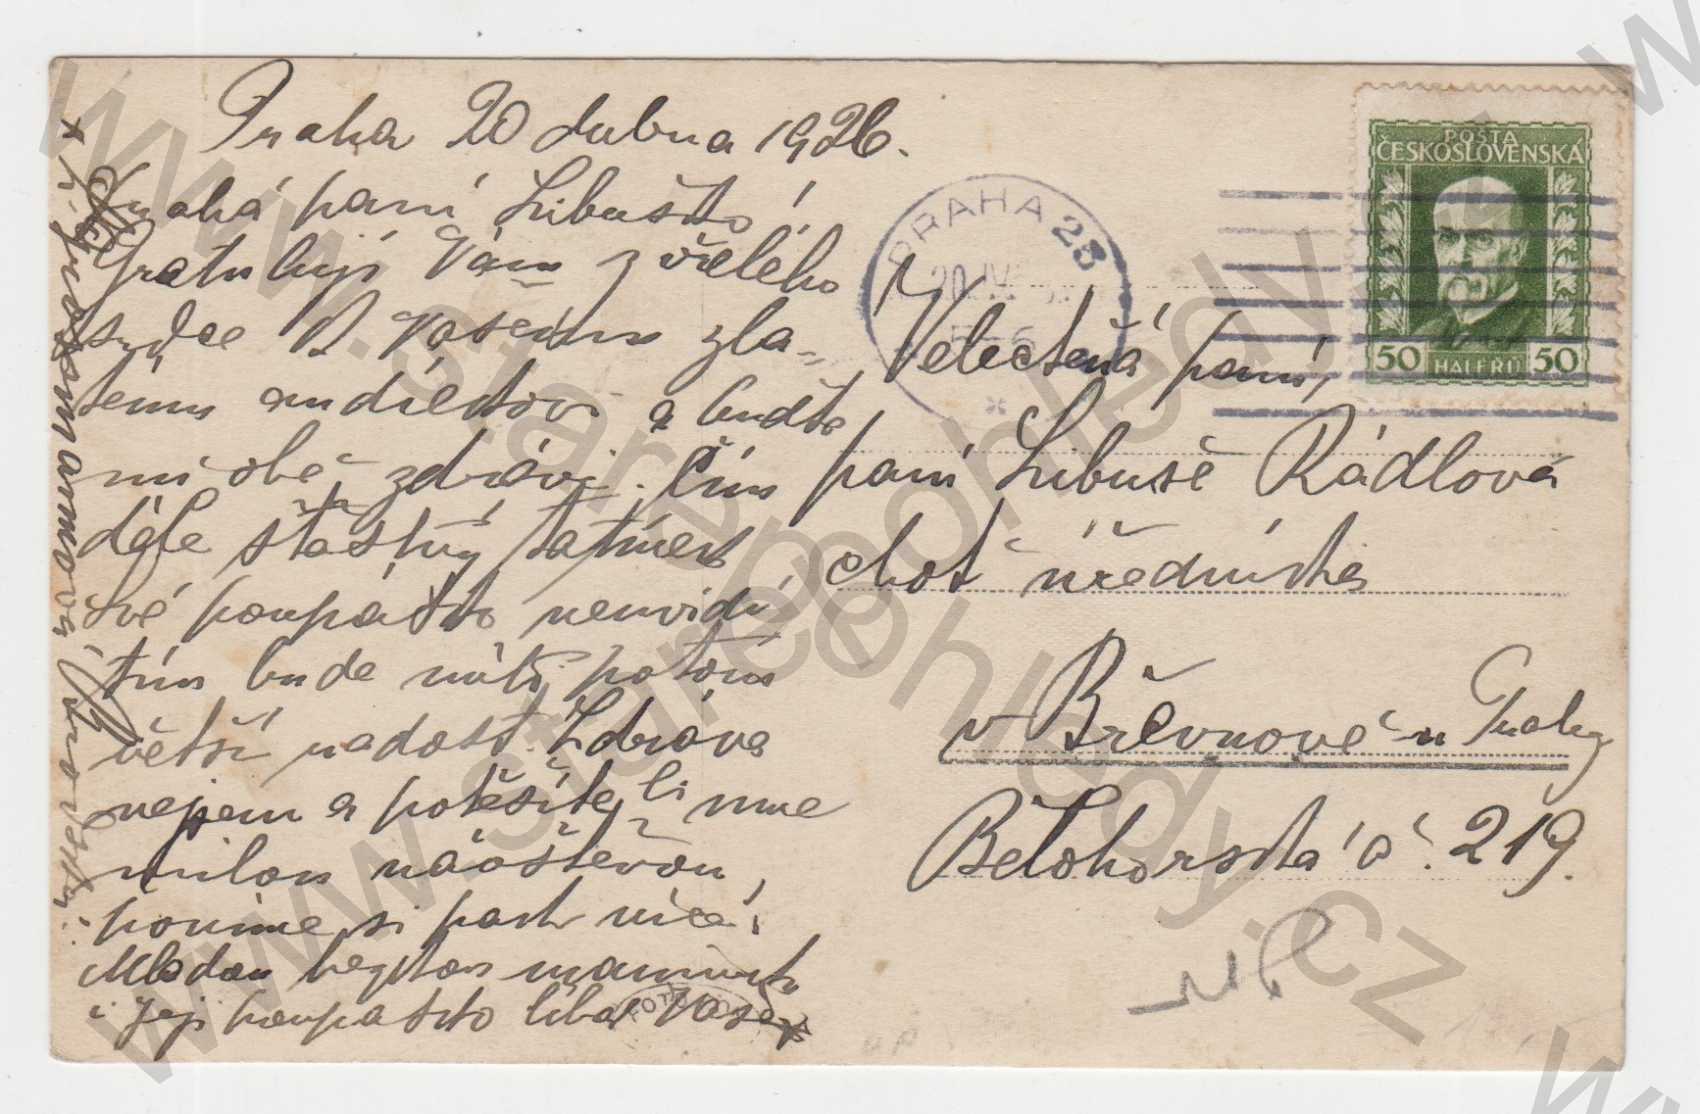 Praha 20 dubna 1926.
Drahá paní Libuško!
Gratuluji Vám z vřelého
srdce k Vašemu zla-
tému andílkovi a buďte
mi obě zdrávi. Čím
déle šťastný tatínek
své poupátko neuvidí
tím bude míti potom
větší radost. Zdráva
nejsem a potěšíte li mne
milou návštěvou,
povíme si pak více.
Mladou hezkou maminku
i její poupátko líbá Vaše
POŠTA
ČESKOSLOVENSKÁ
50 HALÉŘŮ 50
PRAHA 25
20 IV
Velectěná paní,
paní Libuše Rádlová
choť úředníka
v Břevnově u Prahy
Bělohorská č. 219.
www.starepohledy.cz
www.starepohledy.cz